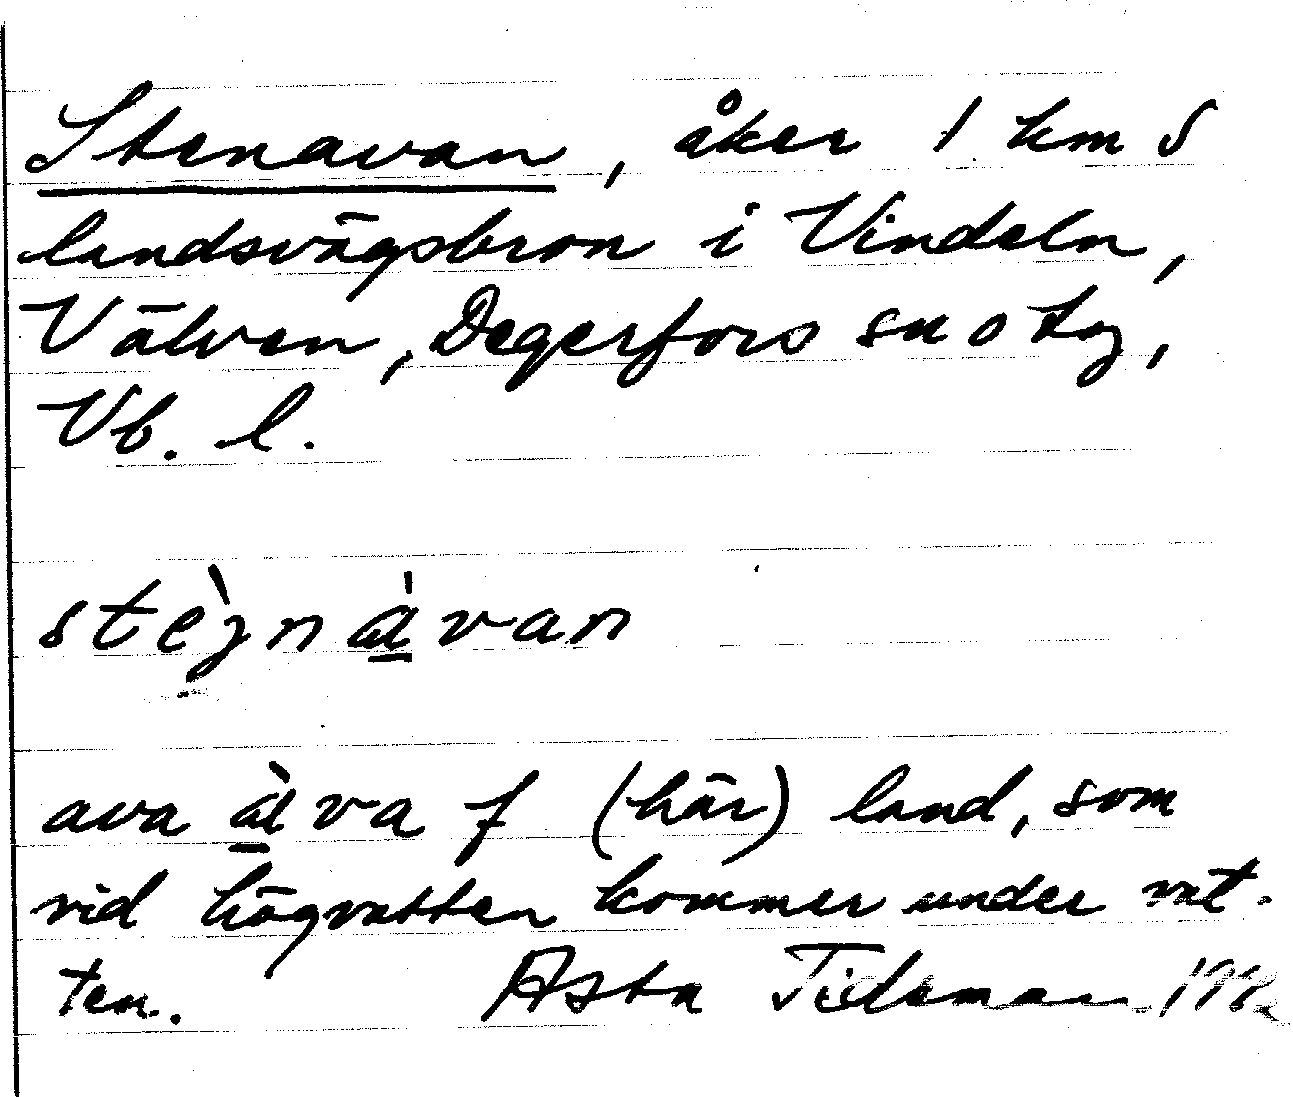 Stenavan, åker 1 km S
landsvägsbron i Vindeln,
Välven, Degerfors sn o tg,
Vb. l.
stèjnávan
ava àva f (här) land, som
vid högvatten kommer under vat-
ten. Asta Tideman